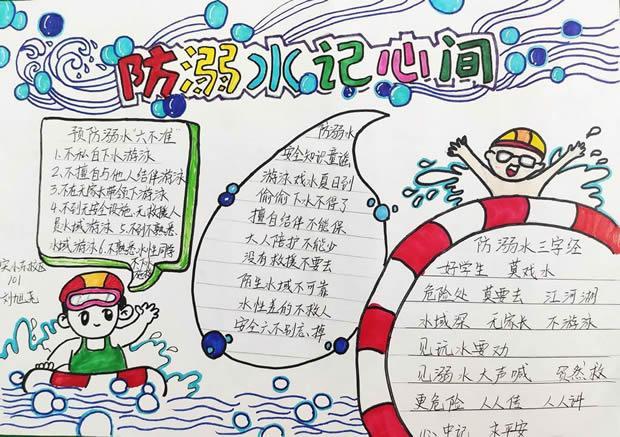 防溺水记心间
预防溺水"六不准"
1.不私自下水游泳
2.不擅自与他人结伴游泳
3.不在无家长带领下游泳
4.不到无安全设施、无救援人
员水域游泳 5.不到不熟悉
水域游泳 6.不熟悉水性同学
101
防溺水
安全知识童谣
游泳戏水夏日到
偷偷下水不得了
擅自结伴不能保
大人陪护不能少
没有救援不要去
陌生水域不可靠
水性差的不救人
安全六不别忘掉
防溺水三字经
好学生 莫戏水
危险处 莫要去 江河湖
水域深 无家长 不游泳
见玩水要劝
见溺水大声喊 贸然救
更危险 人人传 人人讲
心中记 永平安